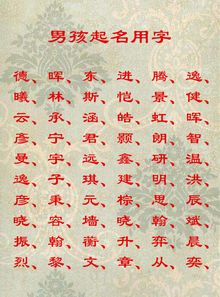 男孩起名用字
德、晖、东、进、腾、逸、
曦、林、斯、恺、景、健、
云、承、涵、皓、虹、晖、
彦、宁、君、颢、朗、智、
曼、宇、远、鑫、研、明、
逸、子、琪、建、温、洪、
彦、秉、元、棕、思、辰、
晓、容、墙、晓、翰、斌、
振、翰、蘅、升、弈、晨、
烈、黎、文、章、从、奕、